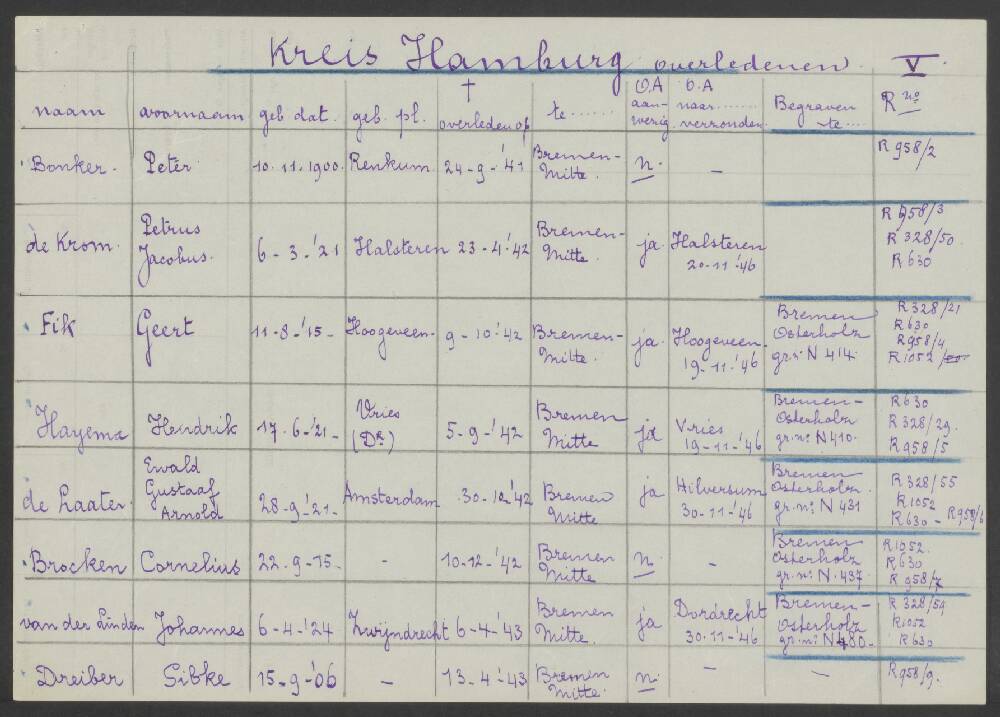 Kreis Hamburg overledenen. V.
naam voornaam geb. dat. geb. pl. † overleden op te ....... O.A aan-wezig O.A naar....... verzonden. Begraven te.... R no
Bonker. Peter 10.11.1900. Renkum. 24-9-'41 Bremen-Mitte. n. - R 958/2
de Krom. Petrus Jacobus. 6-3-'21 Halsteren 23-4-'42 Bremen-Mitte. ja. Halsteren 20-11-'46 R 958/3 R 328/50. R 630
Fik Geert 11-8-'15- Hoogeveen. 9-10-'42 Bremen-Mitte. ja. Hoogeveen. 19-11-'46 Bremen Osterholz gr.no N 414. R 328/21 R 630 R 958/4 R 1052
Hayema Hendrik 17.6-'21- Vries (Dr.) 5-9-'42 Bremen Mitte ja Vries 19-11-'46 Bremen-Osterholz gr.no N 410. R 630 R 328/29. R 958/5
de Laater. Ewald Gustaaf Arnold 28-9-'21- Amsterdam 30-10-'42 Bremen Mitte ja Hilversum 30-11-'46 Bremen Osterholz. gr.no N 431 R 328/55 R 1052 R 630 - R 958/6
Brocken Cornelius 22.9-15- - 10-12-'42 Bremen Mitte n. - Bremen Osterholz gr.no N. 437 R 1052. R 630 R 958/7
van der Linden Johannes 6-4-'24 Zwijndrecht 6-4-'43 Bremen Mitte. ja Dordrecht 30-11-'46 Bremen-Osterholz gr.no N 480- R 328/59 R 1052 R 630
Dreiber Sibke 15-9-'06 - 13-4-'43 Bremen Mitte. n. - - R 958/9.